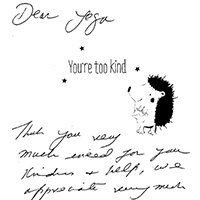 Dear Yoga
You're too kind
Thank you very
much indeed for your
kindness + help, we
appreciate very much